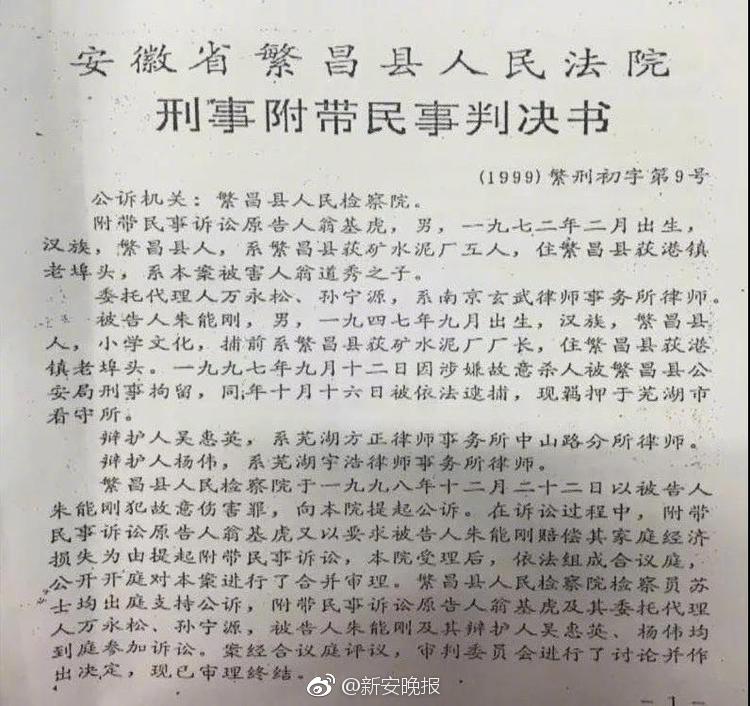 安徽省繁昌县人民法院
刑事附带民事判决书
(1999)繁刑初字第9号
公诉机关：繁昌县人民检察院。
附带民事诉讼原告人翁基虎，男，一九七二年二月出生，
汉族，繁昌县人，系繁昌县荻矿水泥厂工人，住繁昌县荻港镇
老埠头，系本案被害人翁道秀之子。
委托代理人万永松、孙宁源，系南京玄武律师事务所律师。
被告人朱能刚，男，一九四七年九月出生，汉族，繁昌县
人，小学文化，捕前系繁昌县荻矿水泥厂厂长，住繁昌县荻港
镇老埠头。一九九七年九月十二日因涉嫌故意杀人被繁昌县公
安局刑事拘留，同年十月十六日被依法逮捕，现羁押于芜湖市
看守所。
辩护人吴惠英，系芜湖方正律师事务所中山路分所律师。
辩护人杨伟，系芜湖宇浩律师事务所律师。
繁昌县人民检察院于一九九八年十二月二十二日以被告人
朱能刚犯故意伤害罪，向本院提起公诉。在诉讼过程中，附带
民事诉讼原告人翁基虎又以要求被告人朱能刚赔偿其家庭经济
损失为由提起附带民事诉讼，本院受理后，依法组成合议庭，
公开开庭对本案进行了合并审理。繁昌县人民检察院检察员苏
士均出庭支持公诉，附带民事诉讼原告人翁基虎及其委托代理
人万永松、孙宁源，被告人朱能刚及其辩护人吴惠英、杨伟均
到庭参加诉讼。案经合议庭评议，审判委员会进行了讨论并作
出决定，现已审理终结。
@新安晚报
－1－